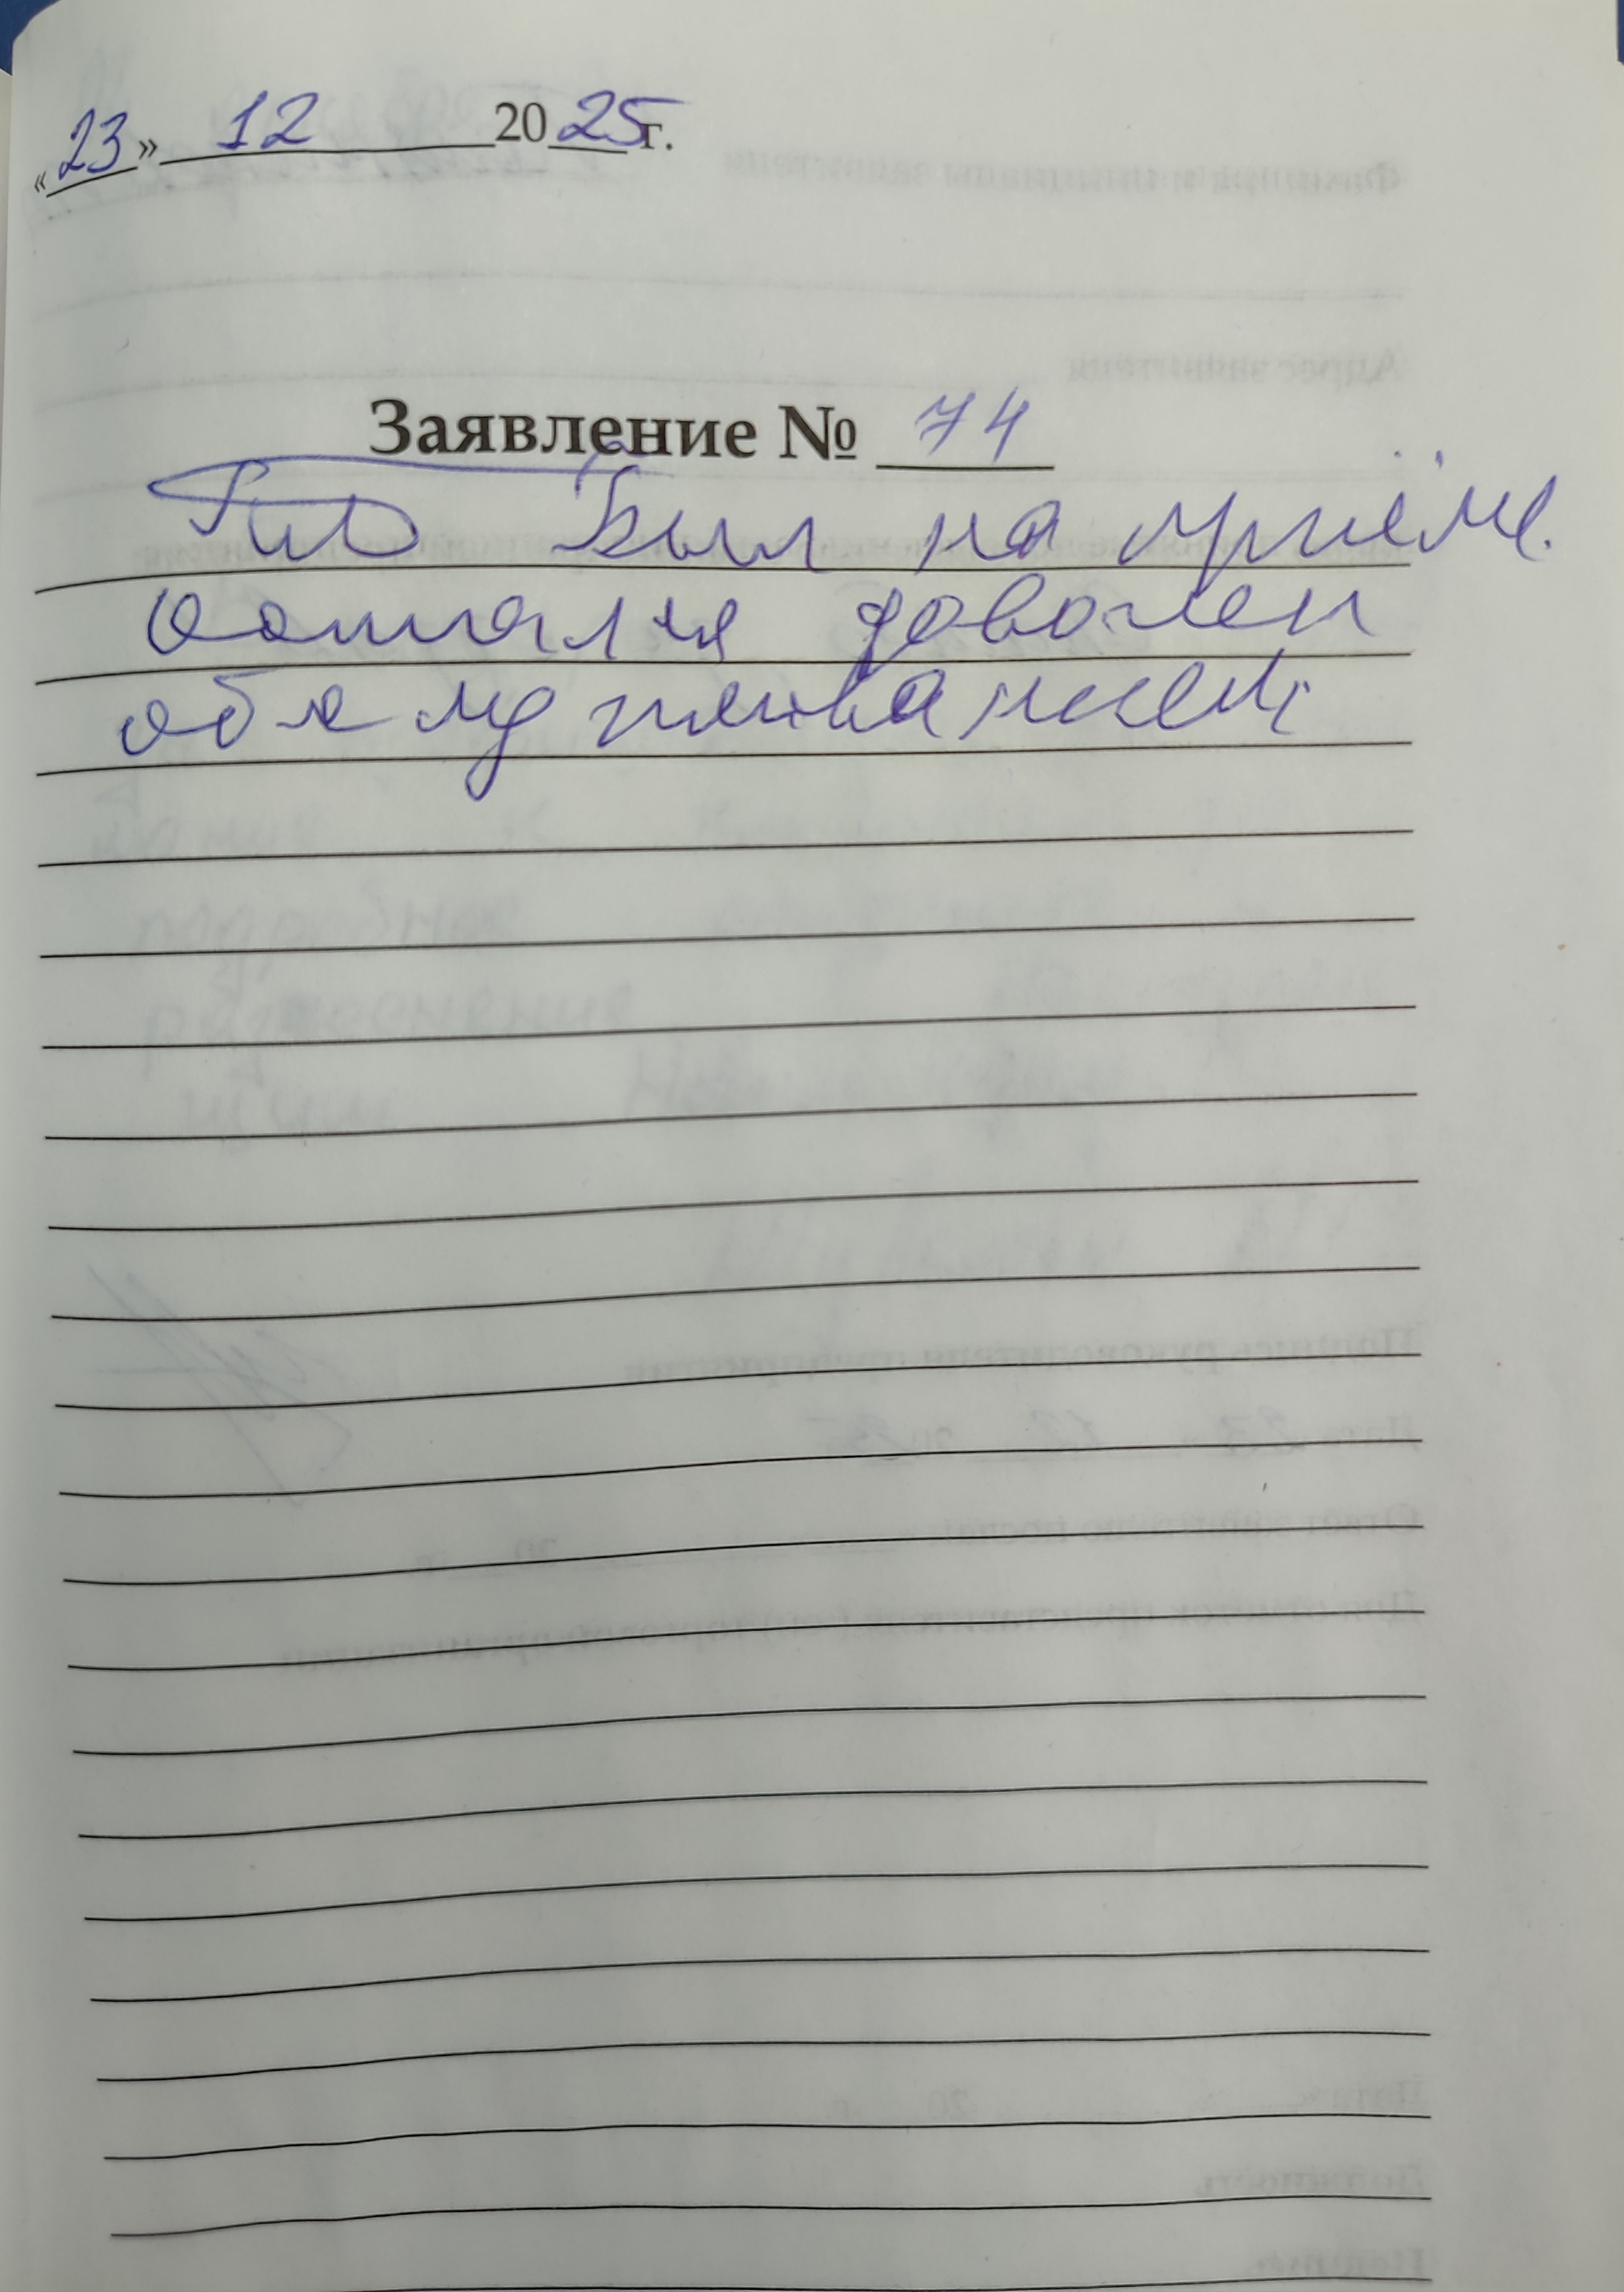 «23» 12 2025г.
Заявление № 74
Был на приёме.
остался доволен
обслуживанием